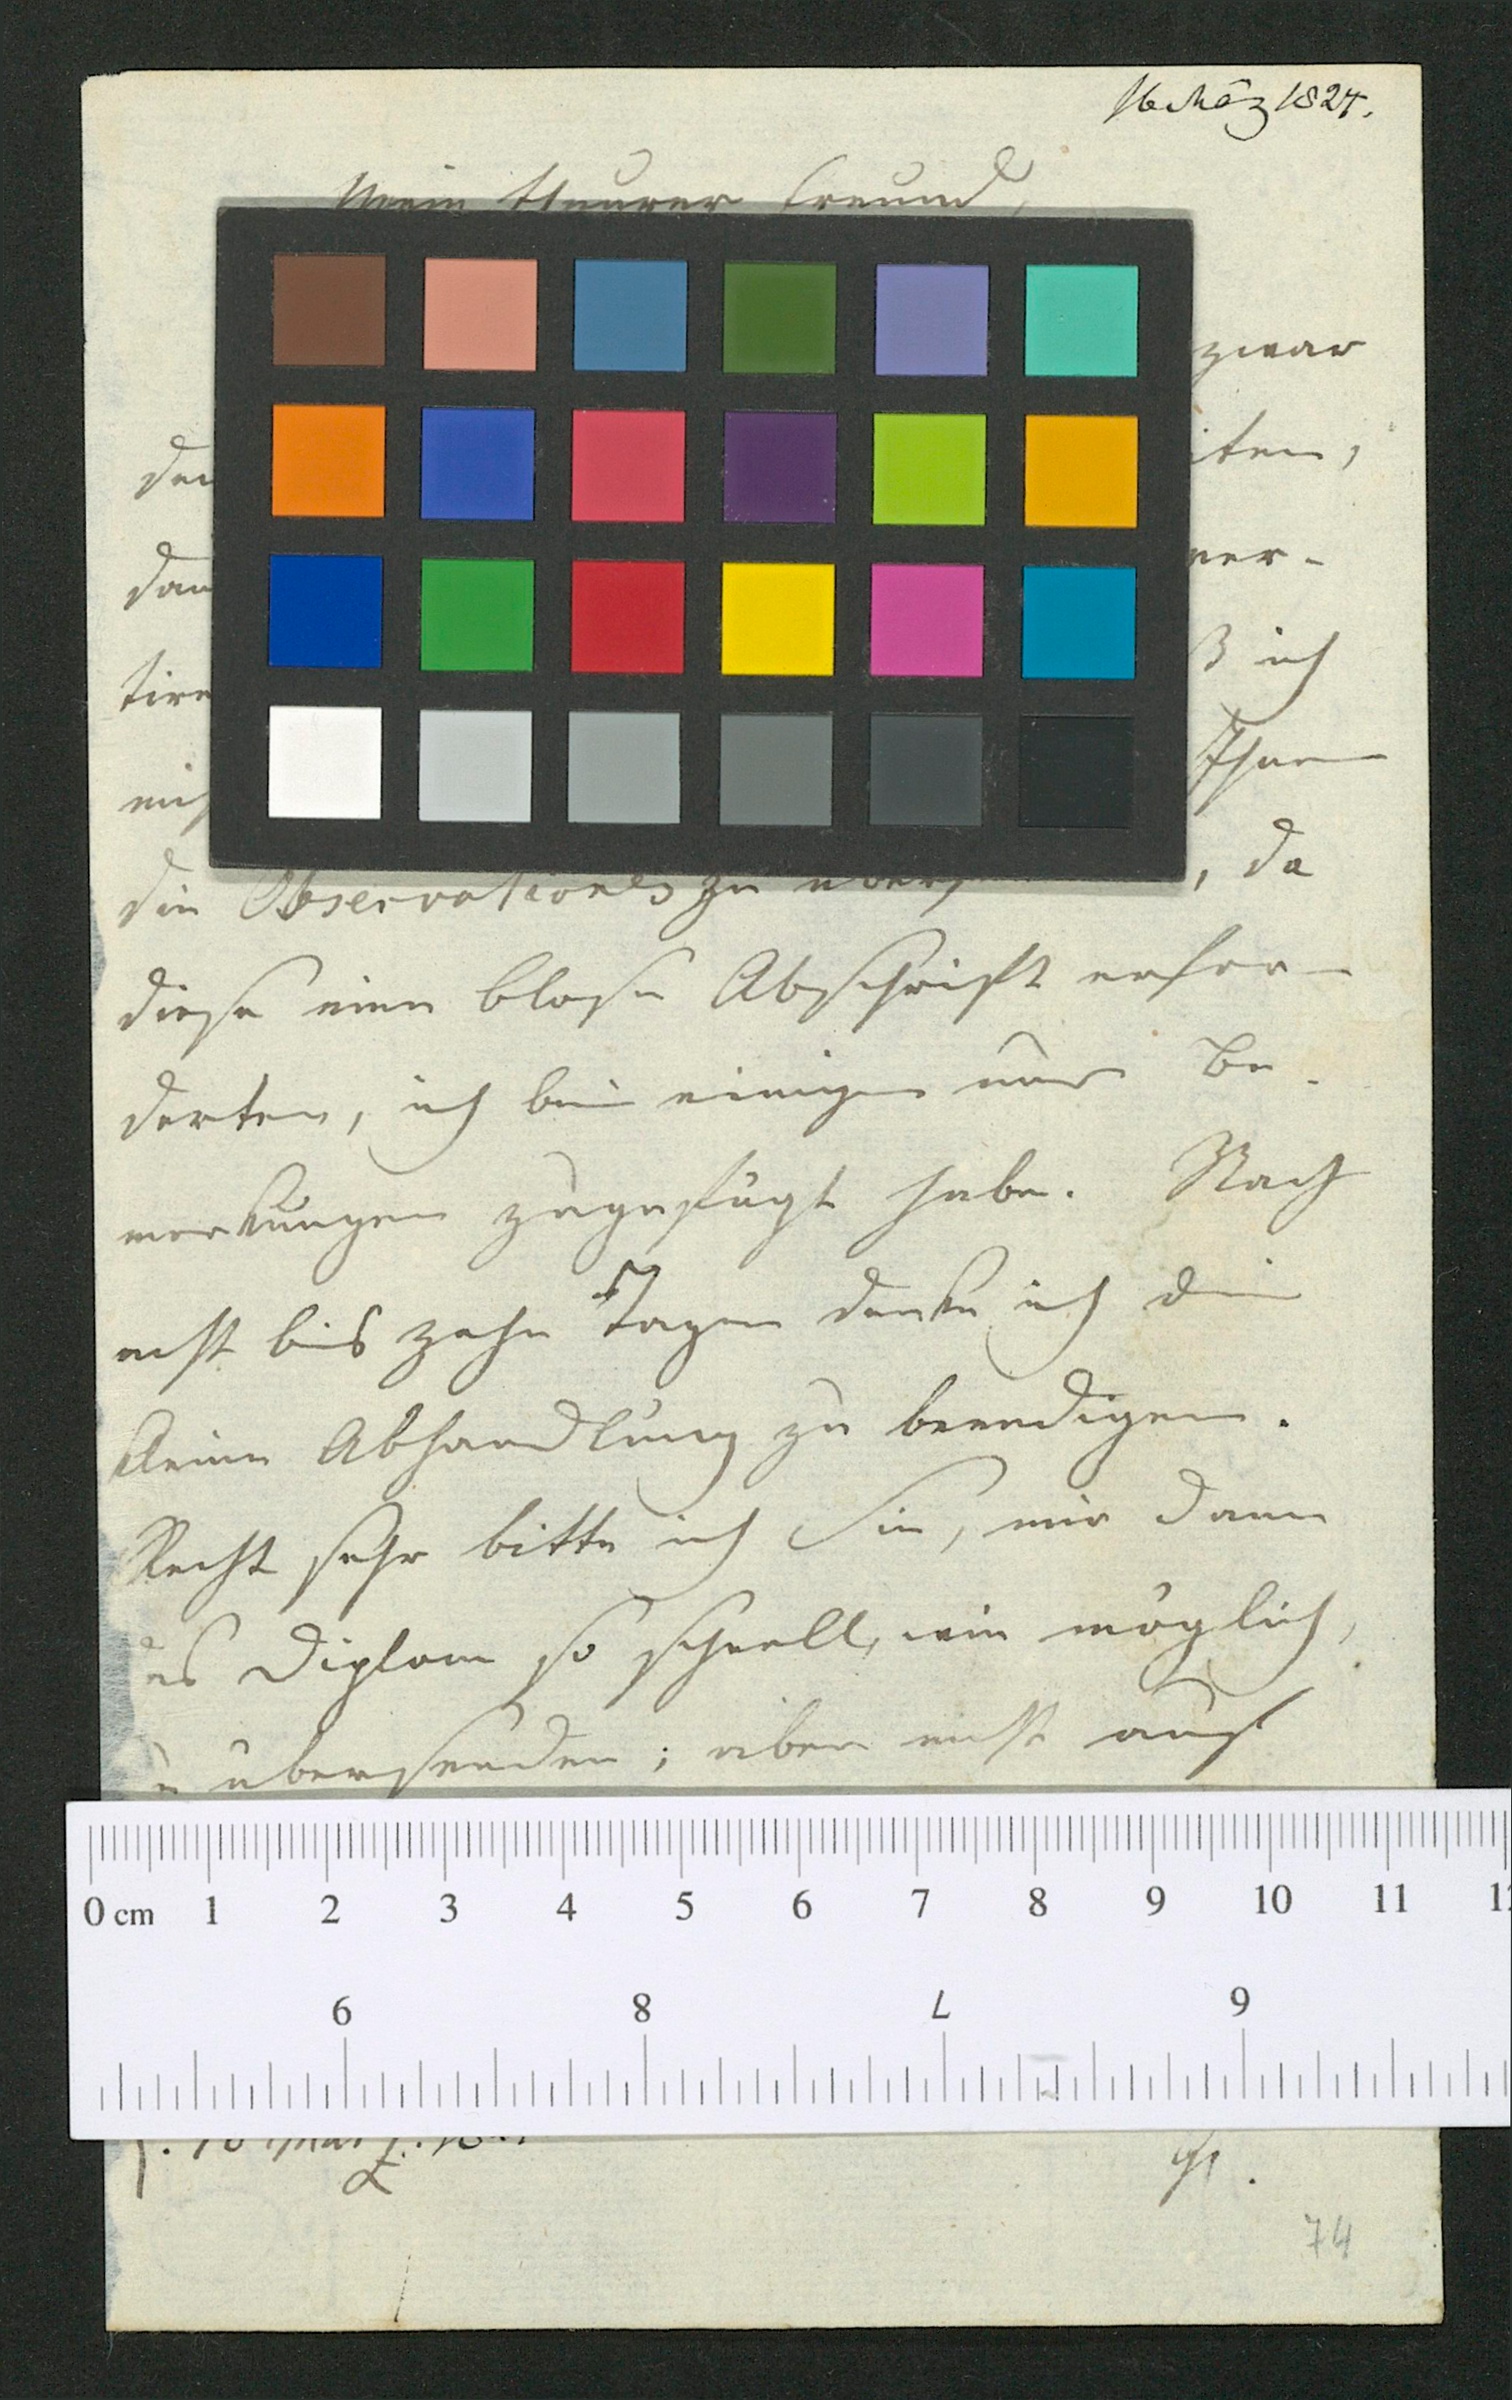 16 März 1824.
Mein theurer Freund,
zwar
iten;
ver-
tire
ß ich
Ihnen
die Observationes zu , da
diese eine blose Abschrift erfor-
derten, ich bei einigen nur Be-
merkungen zugefügt habe. Nach
acht bis zehn Tagen denke ich die
kleine Abhandlung zu beendigen.
Recht sehr bitte ich Sie, mir dann
das Diplom so schnell, wie möglich,
zu übersenden; aber nicht auf
0 cm 1 2 3 4 5 6 7 8 9 10 11
6 8 7 9
74